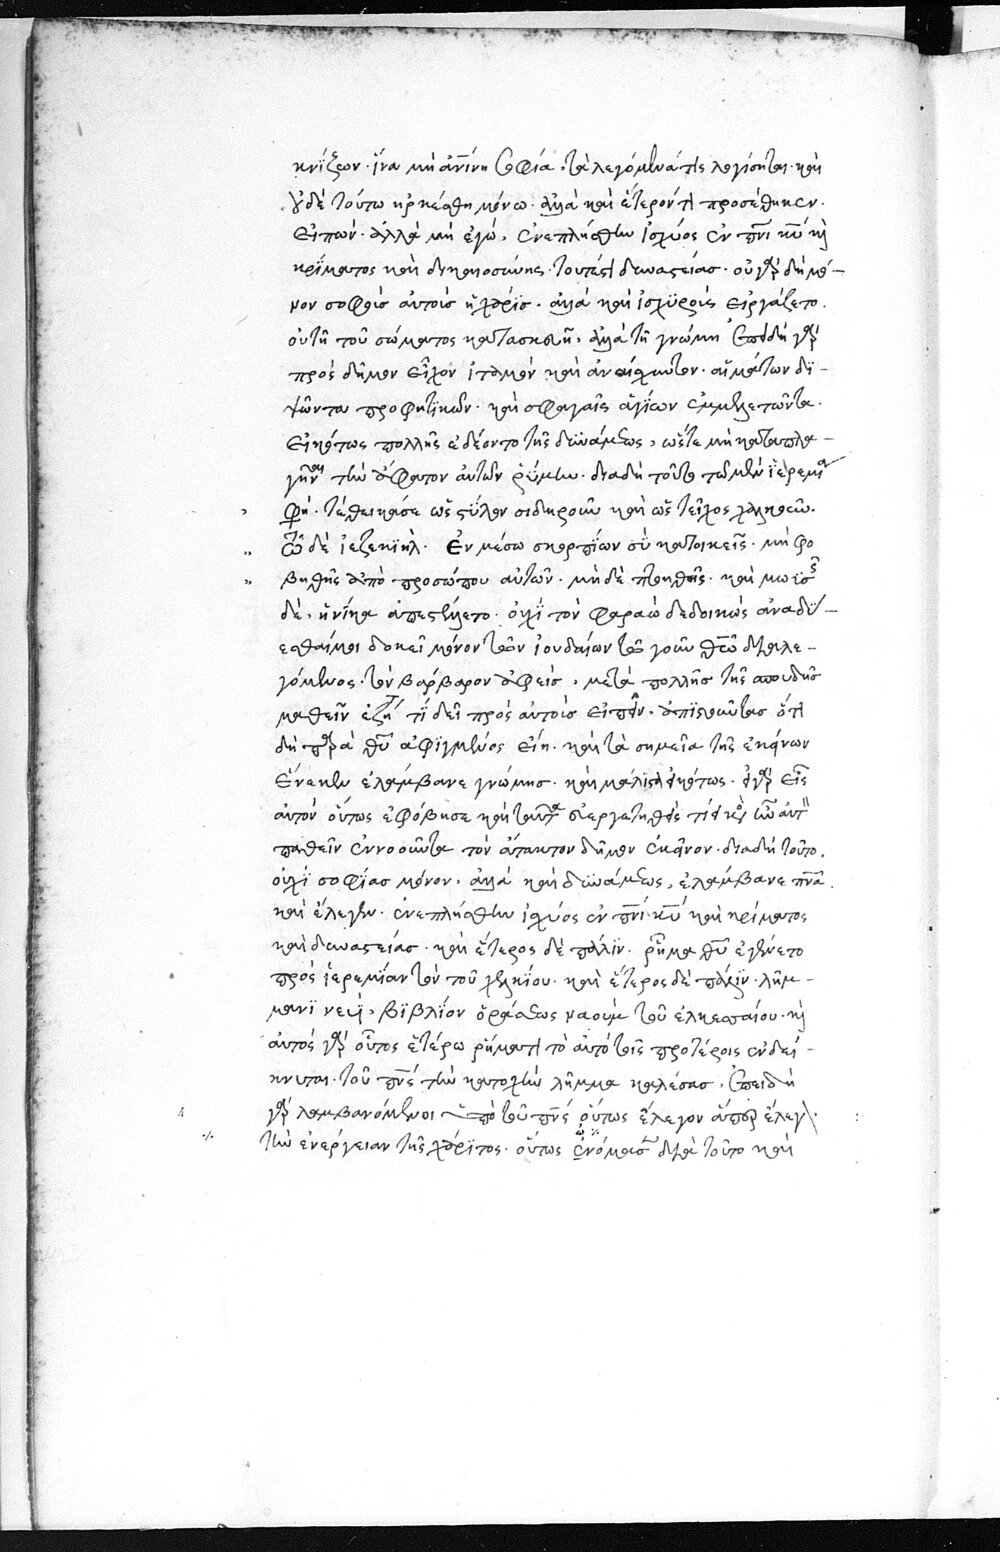 κνίζων· ἵνα μὴ ἀνθρωπίνη σοφία, τὰ λεγόμενά τις λογίσηται· καὶ
οὐδὲ τούτω ἠρκέσθη μόνω· ἀλλὰ καὶ ἕτερόν τι προσέθηκεν·
εἰπών· ἀλλὰ μὴ ἐγώ, ἐνεπλήσθην ἰσχύος ἐν πνι κυ κὶ
κρίματος καὶ δικαιοσύνης· τουτέστι δυναστείας· οὐ γὰρ δὴ μό-
νον σοφοὺς αὐτοὺς ἡ χάρις· ἀλλὰ καὶ ἰσχϋροὺς εἰργάζετο·
οὐ τῆ τοῦ σώματος κατασκευῆ, ἀλλὰ τῆ γνώμη ἐπειδὴ γὰρ
πρὸς δῆμον εἶχον ἰταμὸν καὶ ἀναίσχυντον· αἱμάτων δι-
ψῶντα προφητικῶν· καὶ σφαγαῖς ἁγίων ἐμμελετῶντα·
εἰκότως πολλῆς ἐδέοντο τῆς δυνάμεως, ὥστε μὴ καταπλα-
γῆναι τὴν ἄφατον αὐτῶν ῥύμην· διαδὴ τοῦτο τῶ μὲν ἱερεμία
φησὶ· τέθεικά σε ὡς στύλον σιδηροῦν καὶ ὡς τεῖχος χαλκοῦν·
τῶ δὲ ἰεζεκιὴλ· Ἐν μέσω σκορπίων σὺ κατοικεῖς· μὴ φο
βηθῆς ἀπὸ προσώπου αὐτῶν· μὴ δὲ πτοηθῆς· καὶ μωϊσῆς
δὲ, ἡνίκα ἀπεστέλλετο· οὐχὶ τὸν φαραὼ δεδοικὼς ἀναδύ-
εσθαί μοι δοκεῖ μόνον τῶν ἰουδαίων τῶ γοῦν θεῶ διαλε-
γόμενος· τὸν βάρβαρον ἀφεὶς, μετὰ πολλῆς τῆς σπουδῆς
μαθεῖν ἐζήτει τί δεῖ πρὸς αὐτοὺς εἰπεῖν· ἀπιστοῦντας ὅτι
δὴ παρὰ θυ ἀφιγμένος εἴη· καὶ τὰ σημεῖα τῆς ἐκείνων
ἕνεκεν ἐλάμβανε γνώμης· καὶ μάλιστα εἰκότως· εἰ γὰρ εἷς
αὐτὸν οὕτως ἐφόβησε καὶ ταῦτα εὐεργετηθεὶς τί εἰκὸς ἦν αὐτὸν
παθεῖν ἐννοοῦντα τὸν ἄτακτον δῆμον ἐκεῖνον· διαδὴ τοῦτο,
οὐχὶ σοφίας μόνον, ἀλλὰ καὶ δυνάμεως, ἐλάμβανε πνα·
καὶ ἔλεγεν· ἐνεπλήσθην ἰσχύος ἐν πνι κυ καὶ κρίματος
καὶ δυναστείας· καὶ ἕτερος δὲ πάλιν· ῥῆμα θυ ἐγένετο
πρὸς ἱερεμίαν τὸν τοῦ χελκίου· καὶ ἕτερος δὲ πάλιν· λῆμ-
μα νινευὴ, βιβλίον ὁράσεως ναοὺμ τοῦ ἐλκεσαίου· κὶ
αὐτὸς γὰρ οὗτος ἑτέρω ῥήματι τὸ αὐτὸ τοῖς προτέροις ἐνδεί-
κνυται· τοῦ πνς τὴν κατοχὴν λῆμμα καλέσας· ἐπειδὴ
γὰρ λαμβανόμενοι ὑπὸ τοῦ πνς οὕτως ἔλεγον ἅπερ ἔλεγον·
τὴν ἐνέργειαν τῆς χάριτος· οὕτως ὠνόμασε διὰ τοῦτο καὶ